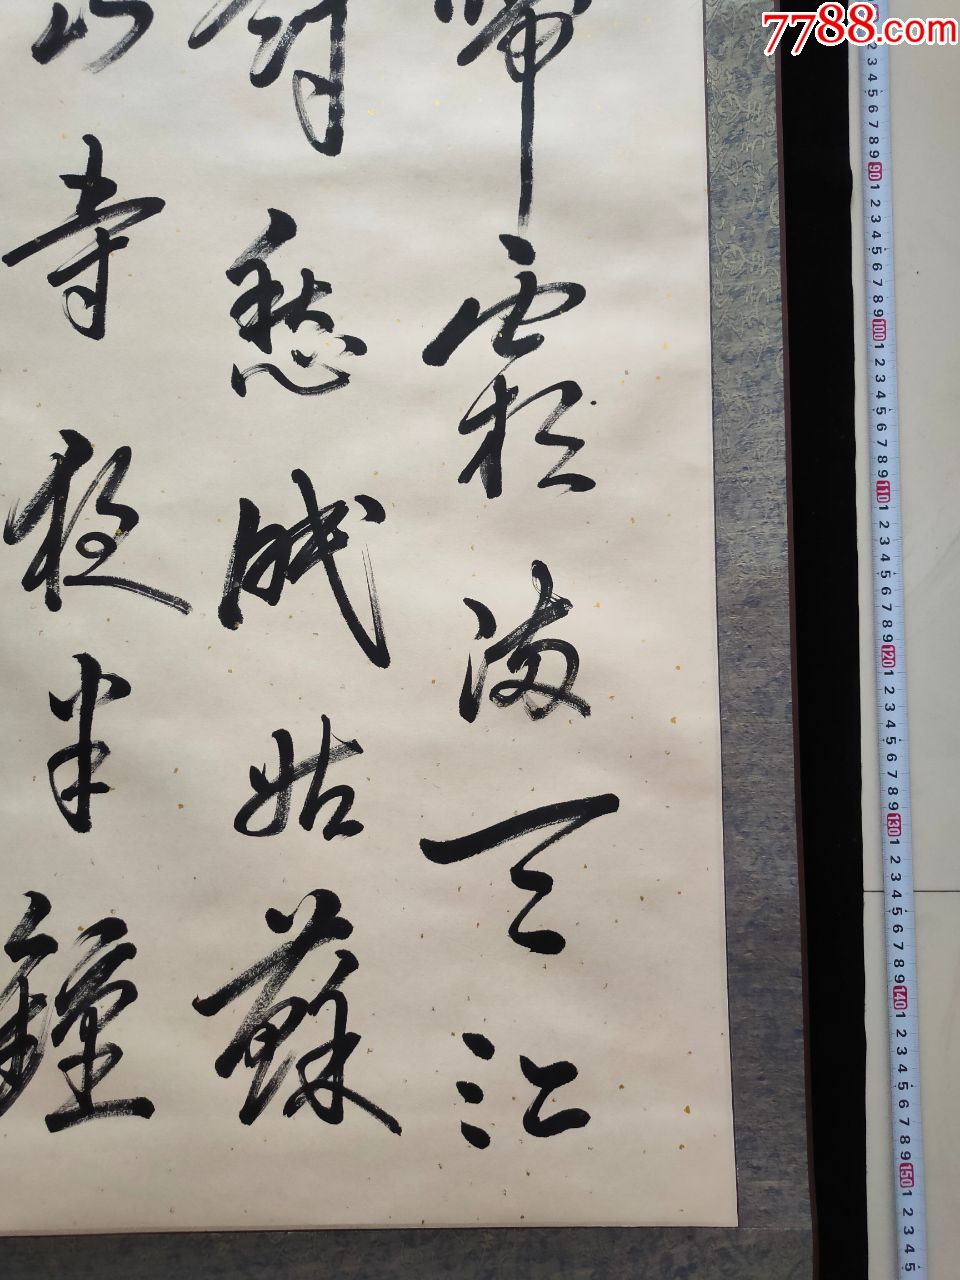 7788.com
啼霜滿天江
對愁眠姑蘇
山寺夜半鐘
2 3 4 5 6 7 8 9 90 1 2 3 4 5 6 7 8 9 100 1 2 3 4 5 6 7 8 9 110 1 2 3 4 5 6 7 8 9 120 1 2 3 4 5 6 7 8 9 130 1 2 3 4 5 6 7 8 9 140 1 2 3 4 5 6 7 8 9 150 1 2 3 4 5